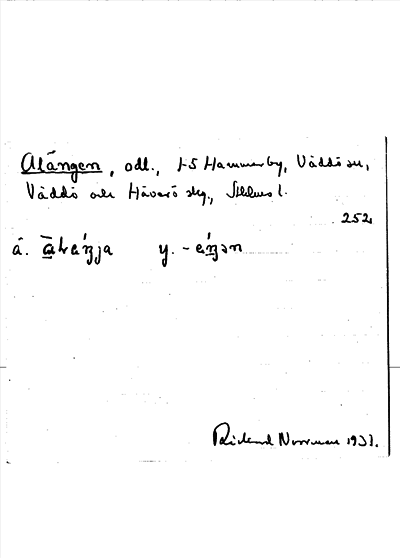 Alängen, odl., 1-5 Hammarby, Väddö sn,
Väddö och Häverö skg., Sthlms l.
252.
ä. a y. -
Rickard Norrman 193